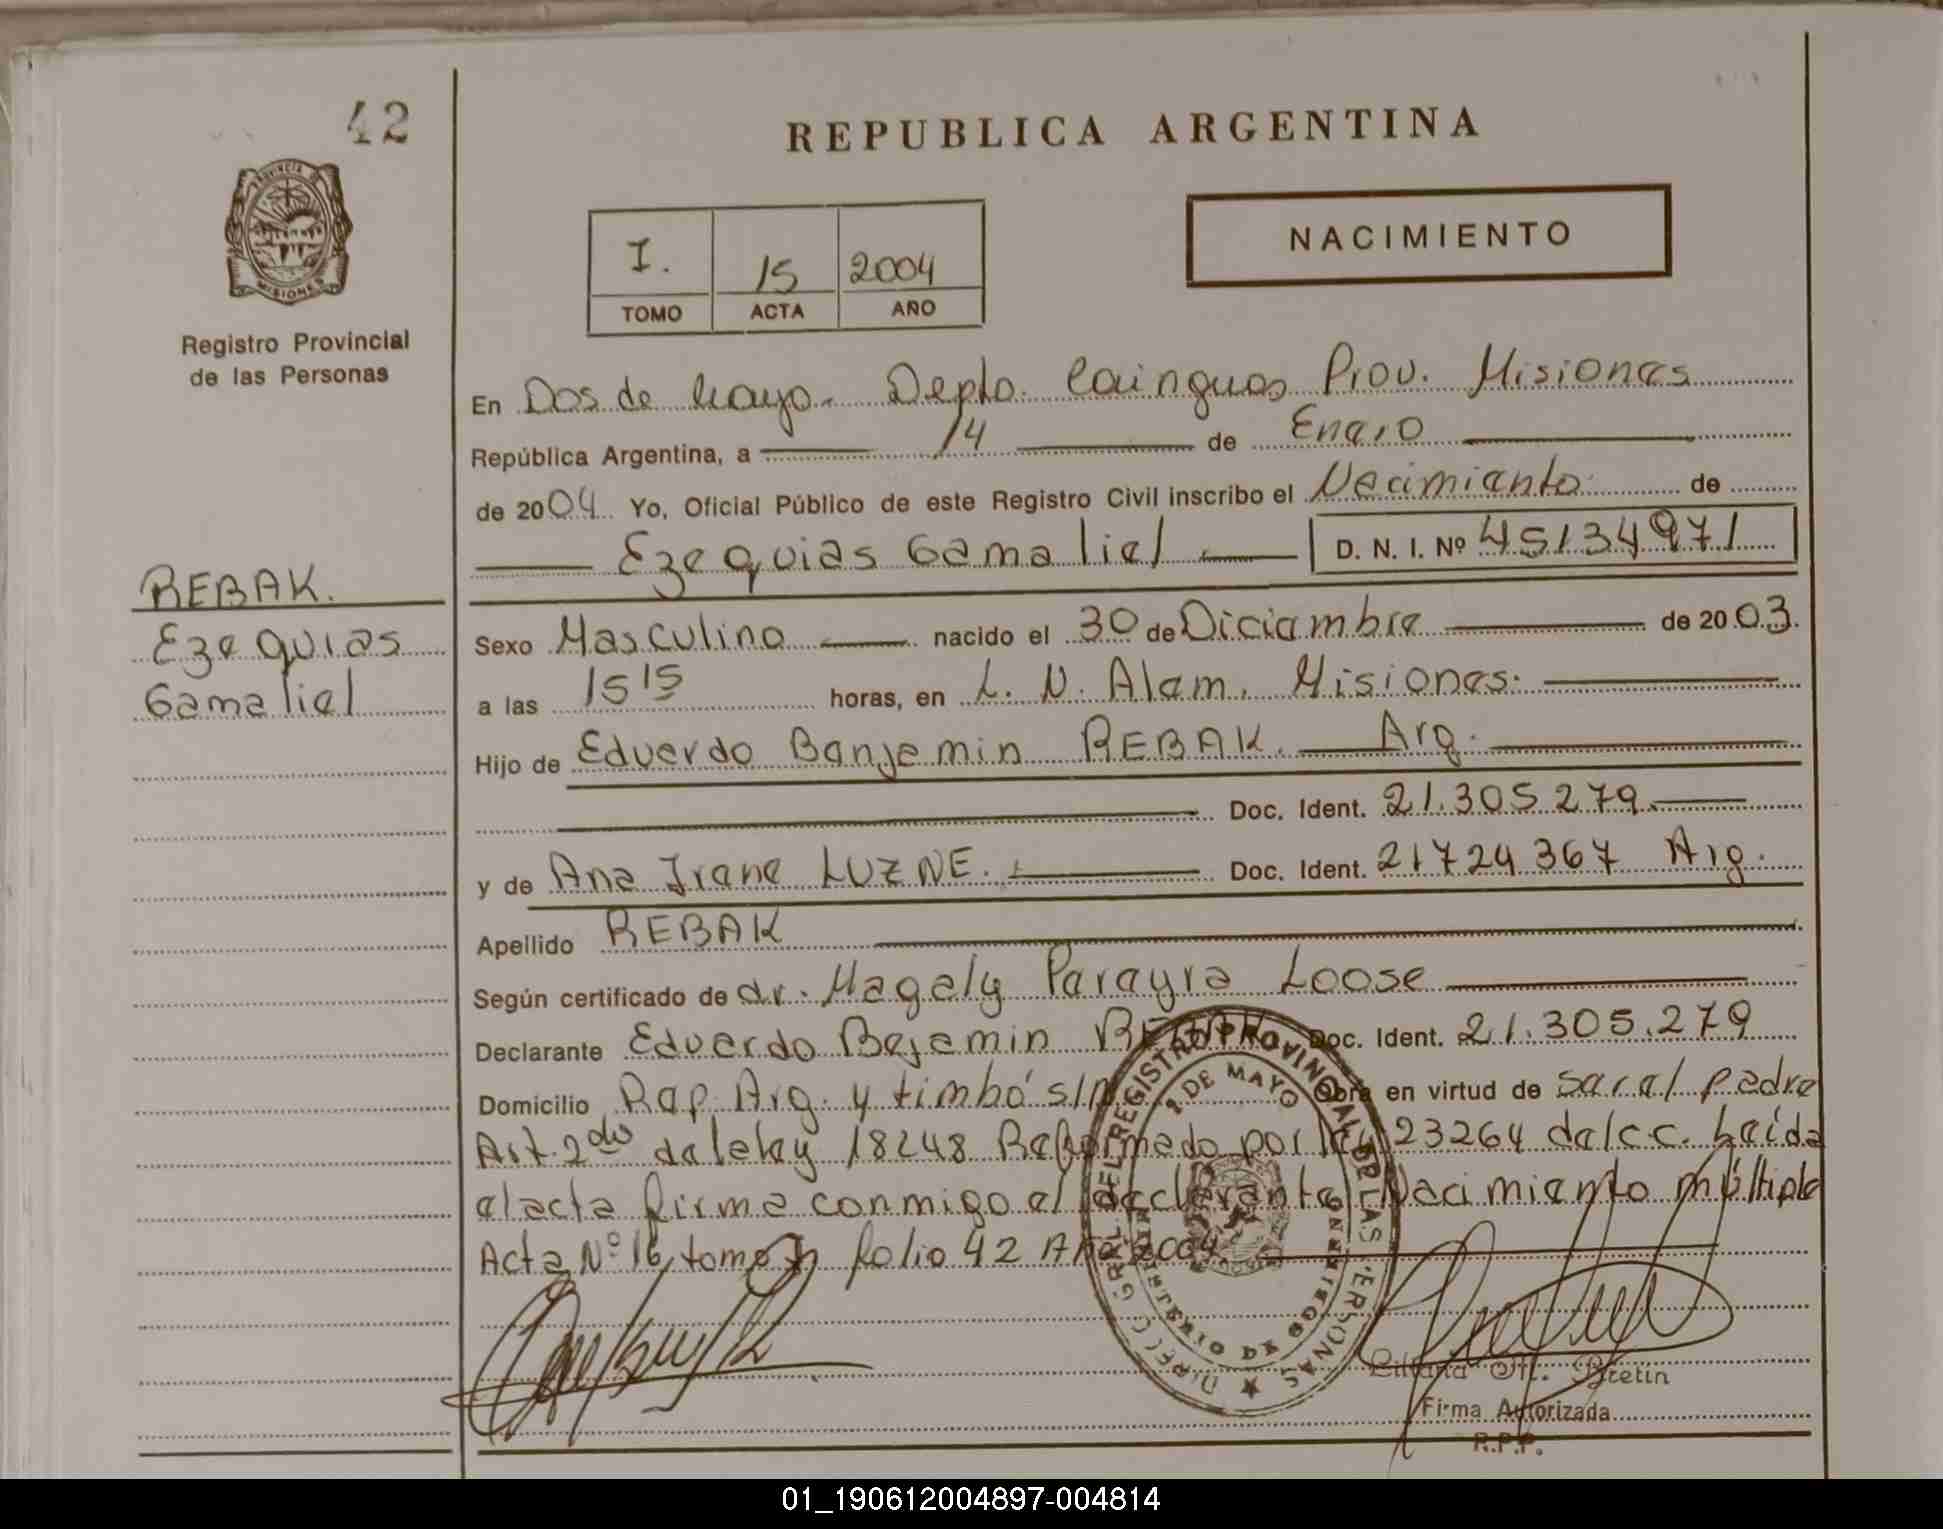 42
REPUBLICA ARGENTINA
PROVINCIA DE
MISIONES
Registro Provincial
de las Personas
I. 15 2004
TOMO ACTA AÑO
NACIMIENTO
En Dos de Mayo. Depto. Cainguas Prov. Misiones
República Argentina, a 14 de Enero
de 2004 Yo, Oficial Público de este Registro Civil inscribo el Nacimiento de
Ezequias Gamaliel D. N. I. Nº 45134971
REBAK.
Ezequias
Gamaliel
Sexo Masculino nacido el 30 de Diciembre de 2003.
a las 15 15 horas, en L. N. Alem. Misiones.
Hijo de Eduardo Banjemin REBAK. Arg.
Doc. Ident. 21.305.279
y de Ana Irene LUZNE. Doc. Ident. 21724367 Arg.
Apellido REBAK
Según certificado de dr. Magaly Pereyra Loose
Declarante Eduardo Bejemin REBAK Doc. Ident. 21.305.279
Domicilio Rep. Arg. y timbó s/n Obra en virtud de ser el padre
Art. 2do de la ley 18248 Reformado por ley 23264 del c.c. Leída
el acta firma conmigo el declarante Nacimiento múltiple
Acta Nº 16 tomo I folio 42 Año 2004
DIREC. GRAL. DEL REGISTRO PROVINCIAL DE LAS PERSONAS
2 DE MAYO
Bretin
Firma Autorizada
R.P.P.
01_190612004897-004814